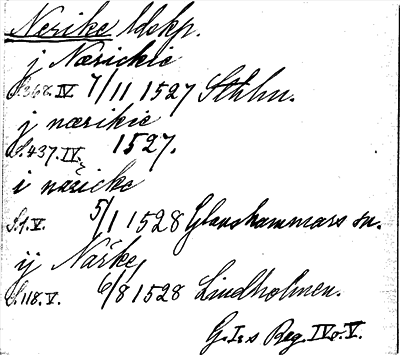 Nerike ldskp.
j Nærickie
S. 368. IV 7/11 1527 Sthlm.
j nærikie
S. 437. IV. 1527.
i näricke
S. 1. V. 5/1 1528 Glanshammars sn.
ij Närke
S. 118. V. 6/8 1528 Lindholmen.
G. I:s Reg. IV o. V.